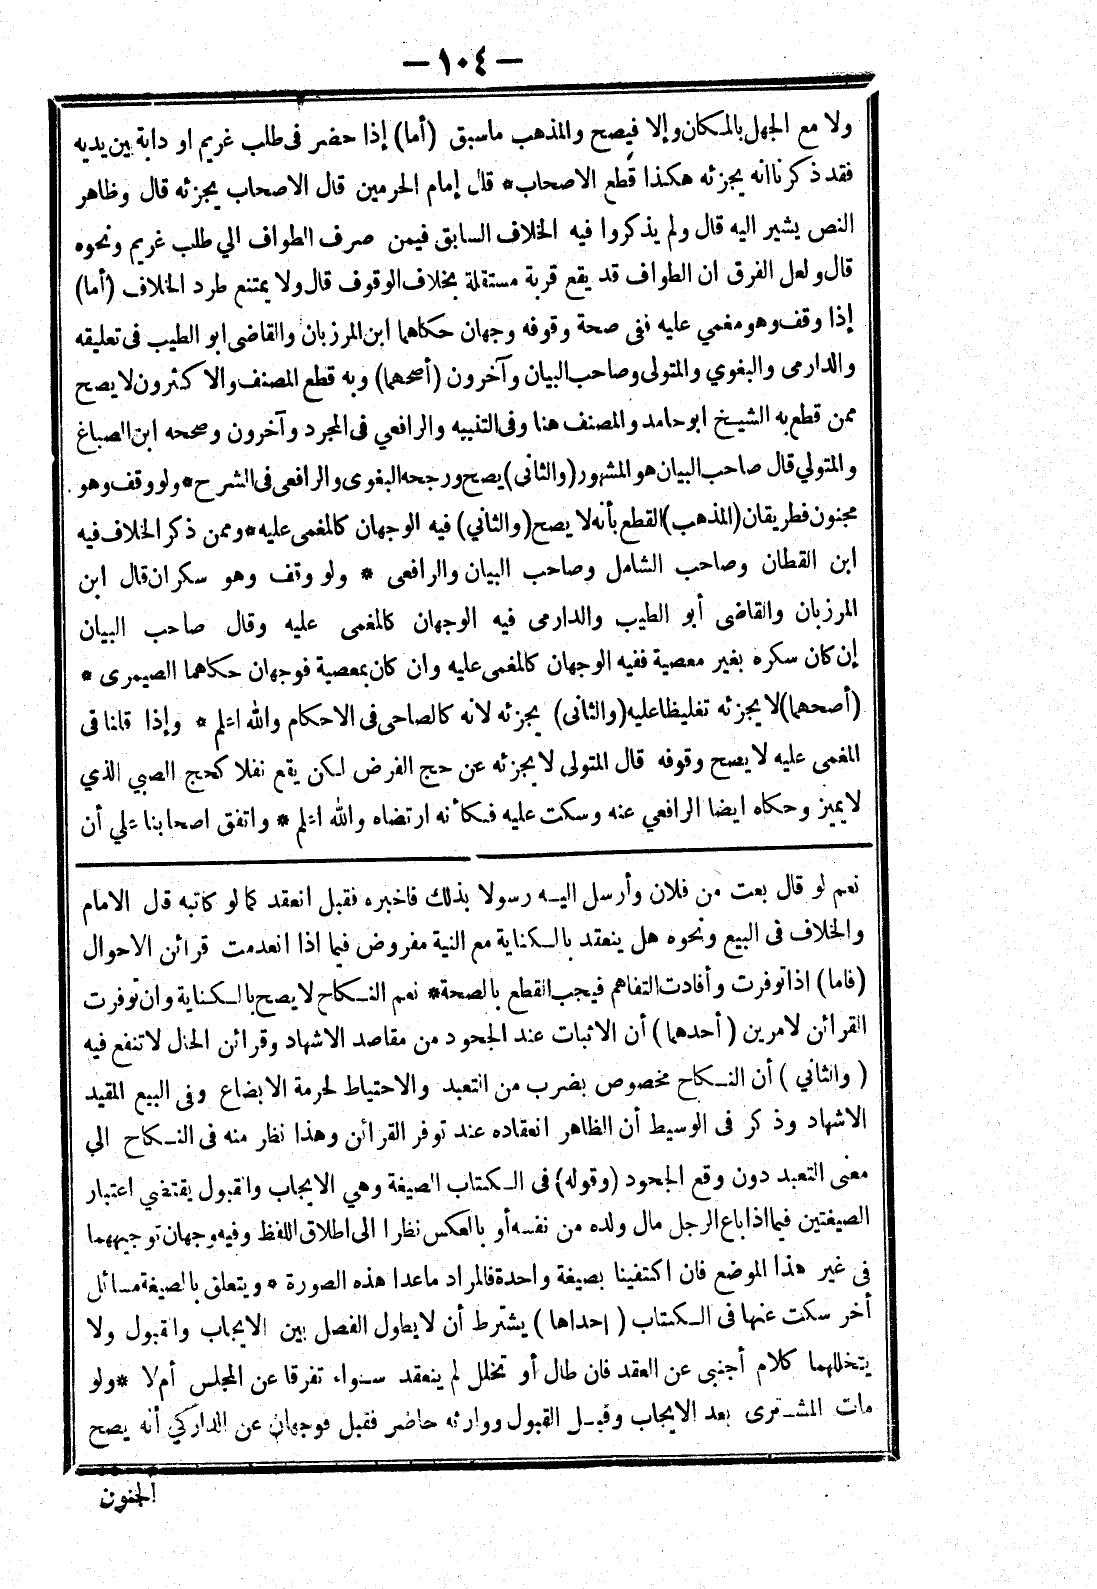 — ١٠٤ —
ولا مع الجهل بالمكان وإلا فيصح والمذهب ماسبق (أما) إذا حضر فى طلب غريم او دابة بين يديه
فقد ذكرنا انه يجزئه هكذا قطع الاصحاب * قال إمام الحرمين قال الاصحاب يجزئه قال وظاهر
النص يشير اليه قال ولم يذكروا فيه الخلاف السابق فيمن صرف الطواف الي طلب غريم ونحوه
قال ولعل الفرق ان الطواف قد يقع قربة مستقلة بخلاف الوقوف قال ولا يمتنع طرد الخلاف (أما)
إذا وقف وهو مغمي عليه ففى صحة وقوفه وجهان حكاهما ابن المرزبان والقاضى ابو الطيب فى تعليقه
والدارمى والبغوي والمتولى وصاحب البيان وآخرون (أصحهما) وبه قطع المصنف والاكثرون لا يصح
ممن قطع به الشيخ ابو حامد والمصنف هنا وفى التنبيه والرافعي فى المجرد وآخرون وصححه ابن الصباغ
والمتولي قال صاحب البيان هو المشهور (والثانى) يصح ورجحه البغوى والرافعى فى الشرح * ولو وقف وهو
مجنون فطريقان (المذهب) القطع بأنه لا يصح (والثاني) فيه الوجهان كالمغمى عليه * وممن ذكر الخلاف فيه
ابن القطان وصاحب الشامل وصاحب البيان والرافعى * ولو وقف وهو سكران قال ابن
المرزبان والقاضى أبو الطيب والدارمى فيه الوجهان كالمغمى عليه وقال صاحب البيان
إن كان سكره بغير معصية ففيه الوجهان كالمغمى عليه وان كان بمعصية فوجهان حكاهما الصيمرى *
(أصحهما) لا يجزئه تغليظا عليه (والثانى) يجزئه لانه كالصاحى فى الاحكام والله اعلم * وإذا قلنا فى
المغمى عليه لا يصح وقوفه قال المتولى لا يجزئه عن حج الفرض لكن يقع نفلا كحج الصبي الذي
لا يميز وحكاه ايضا الرافعي عنه وسكت عليه فكأنه ارتضاه والله اعلم * واتفق اصحابنا علي أن
نعم لو قال بعت من فلان وأرسل اليه رسولا بذلك فاخبره فقبل انعقد كما لو كاتبه قال الامام
والخلاف فى البيع ونحوه هل ينعقد بالكناية مع النية مفروض فيما اذا انعدمت قرائن الاحوال
(فاما) اذا توفرت وأفادت التفاهم فيجب القطع بالصحة * نعم النكاح لا يصح بالكناية وان توفرت
القرائن لامرين (أحدهما) أن الاثبات عند الجحود من مقاصد الاشهاد وقرائن الحال لا تنفع فيه
(والثاني) أن النكاح مخصوص بضرب من التعبد والاحتياط لحرمة الابضاع وفى البيع المقيد
الاشهاد وذكر فى الوسيط أن الظاهر انعقاده عند توفر القرائن وهذا نظر منه فى النكاح الي
معنى التعبد دون وقع الجحود (وقوله) فى الكتاب الصيغة وهي الايجاب والقبول يقتضي اعتبار
الصيغتين فيما اذا باع الرجل مال ولده من نفسه أو بالعكس نظرا الى اطلاق اللفظ وفيه وجهان توجيههما
فى غير هذا الموضع فان اكتفينا بصيغة واحدة فالمراد ماعدا هذه الصورة * ويتعلق بالصيغة مسائل
أخر سكت عنها فى الكتاب (إحداها) يشترط أن لا يطول الفصل بين الايجاب والقبول ولا
يتخللهما كلام أجنبى عن العقد فان طال أو تخلل لم ينعقد سواء تفرقا عن المجلس أم لا * ولو
مات المشترى بعد الايجاب وقبل القبول ووارثه حاضر فقبل فوجهان عن الداركي أنه يصح
الجنون